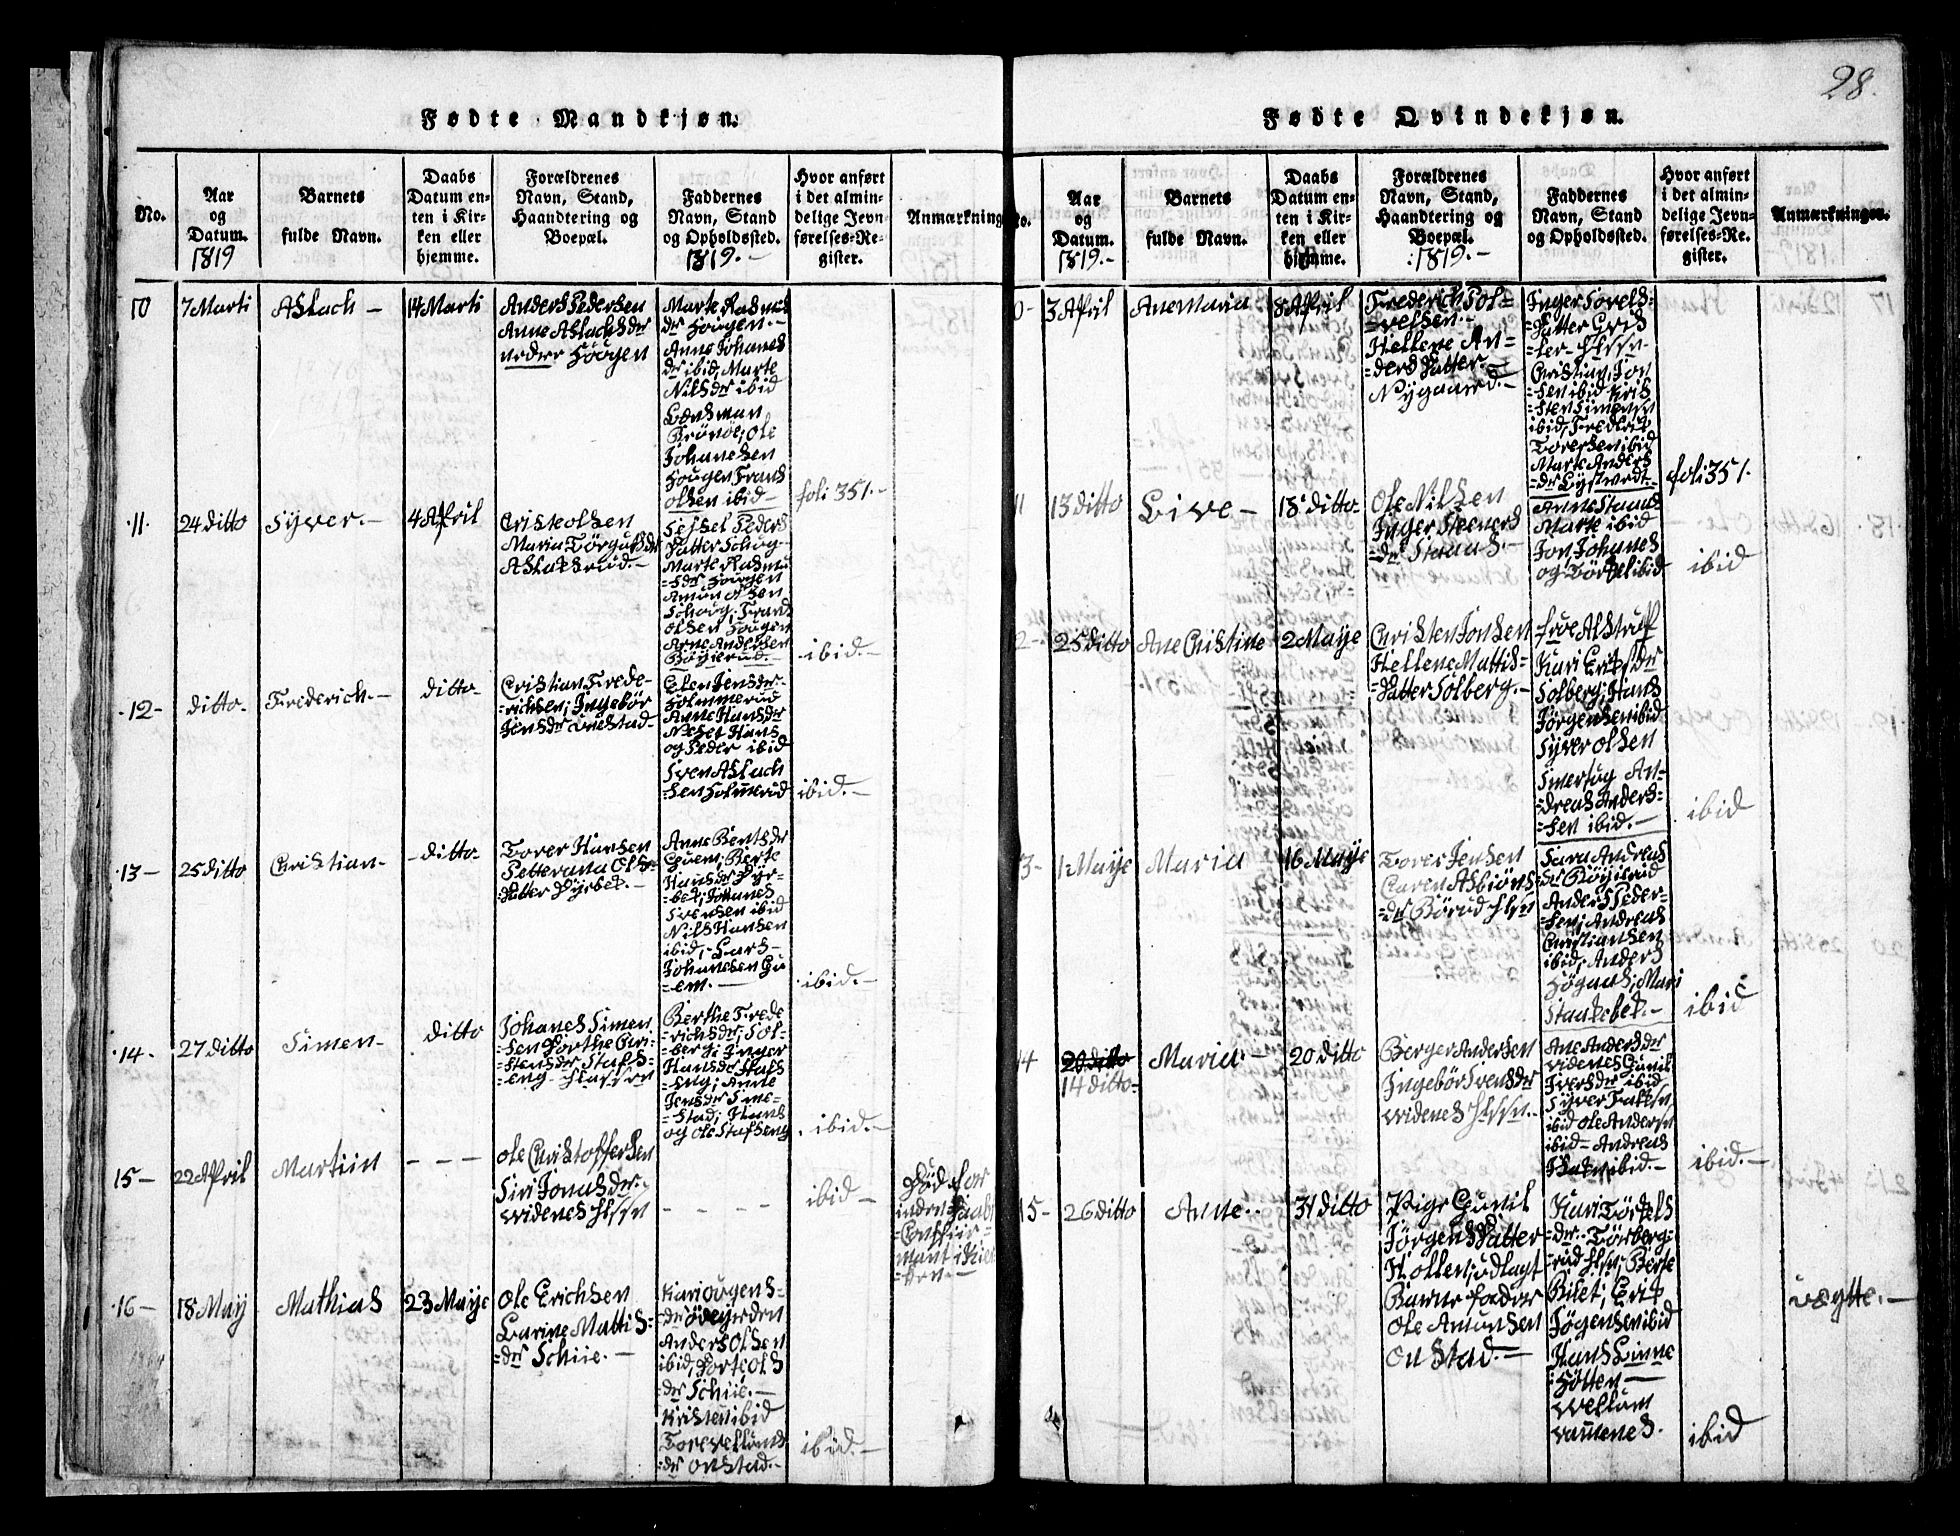 28.
Fødte Mandkjøn.
No.
Aar
og
Datum.
1819
Barnets
fulde Navn.
Daabs
Datum en-
ten i Kir-
ken eller
hjemme.
Forældrenes
Navn, Stand,
Haandtering og
Boepæl.
Faddernes
Navn, Stand
og Opholdssted.
1819.-
Hvor anført
i det almin-
delige Jevn-
førelses-Re-
gister.
Anmærkning
10
7 Marti
Aslach -
14 Marti
Anders Pedersen
Anne Aslachsdr
nedre Høugen
Marte Rasmus
dr Hougen.-
Anne Johanes
dr ibid, Marte
Nilsdr ibid
Lænsman
Ole
Johanesen
Hougen Frans
Olsen ibid-
foli 351.-
11.
24 ditto
Syver.-
4 April
Marte Rasmu
Hougen
Amun Olsen
Schoug. Frans
Olsen Hougen
Arne Andersen
Bøyerud.-
ibid.-
12-
ditto-
Friderich.-
ditto-
Cristian Frede-
=richsen; Ingebør
Jensdr Onestad-
Elen Jensdr-
Holmmerud
Anne Hansdr
Neset Hans
og Peder ibid
Sven Aslach
=sen Holmerud
ibid.-
13-
25 ditto
Christian-
-ditto-
Torer Hansen
Petterana Ols-
Datter Dyrbek.-
Anne Berthsdr
Guem; Berte
Hansdr Dyr-
=bek, Johanes
Svensen ibid
Nils Hansen
ibid,- Lars-
Johanesen Gu
=em.-
ibid.-
14.
27 ditto
Simen-
ditto
Johanes Simen
=sen Dorthe Cri-
=stensdr Stafs-
=eng
Berthe Frede
richsdr, Sol-
berg; Inger
Hansdr Stafs
=eng; Anne
Jensdr Sme-
=stad; Hans
og Ole Stafseng
ibid.-
15-
22 April
Martiin
- - -
Ole Christoffersen
Siri Jonasdr-
widenes
- - - -
ibid-
Død før
inden Daabs
16-
18 May
Mathias
23 Maye
Ole Erichsen
Larine Mattis-
=dr Schiie.-
Kari
=dr Ødegrden
Anders Olsen
ibid, Dorte Ols
dr Schiie.-
Kristen ibid
Tore
dr Onstad.-
ibid.-
Fødte Qvindekjøn.
No.
Aar
og
Datum.
1819.-
Barnets
fulde Navn.
Daabs
Datum en-
ten i Kir-
ken eller
hjemme.
Forældrenes
Navn, Stand,
Haandtering og
Boepæl.
1819.-
Faddernes
Navn, Stand
og Opholdssted.
Hvor anført
i det almin-
delige Jevn-
førelses-Re-
gister.
Anmærkninger.
0-
3 April
Ane Maria
8 April
Frederich Tol-
=velsen.-
Hellene An-
=ders Datter-
Nygaard.-
Cristian Jon
=sen ibid Kris
=ten Simensen
ibid, Fredrik
Toresen ibid
Marte Anders
foli 351.
11
13 ditto
Live-
18 ditto
Ole Nilsen
Inger Steners
=dr Staaas.-
Anne Staaas
Marte ibid
Jon, Johanes
og Torkel ibid
ibid
2-
25 ditto
Ane Christine
2 Maye
Christen Jonsen
Hellene Mattis-
Datter Solberg.-
Kari Eriksdr
Solberg; Hans
Jørgensen ibid
Syver Olsen
An-
=dreas Anders-
=sen ibid.-
ibid
3-
1 Maye
Maria
16 Maye
Torer Jensen
Caren Asbiøns
=dr Børud
Sara Andreas
dr Bøyerud
Anders Peder-
=sen; Andreas
Christiansen
ibid, Anders
Høgaas, Mari
Staakebek.-
ibid
4
20 ditto
14 ditto-
Maria.-
20 ditto
Berger Andersen
Ingebør Svensdr
widenes
Ane Andersdr
videnes Gunil
Iversdr ibid
Syver
ibid Ole Andersen
ibid- Andreas
ibid.-
ibid.-
15-
26 ditto
Anne..
31 ditto
Pige Gunil
Jørgens Datter
Hollen; udlagt
Barne fader
Ole Amonsen
Onstad.-
Kari Torkels
=dr.. Torberg-
Berte
Bilet; Erik
Jøgensen ibid
Hans Linne
Holten-
ibid
uægte.-